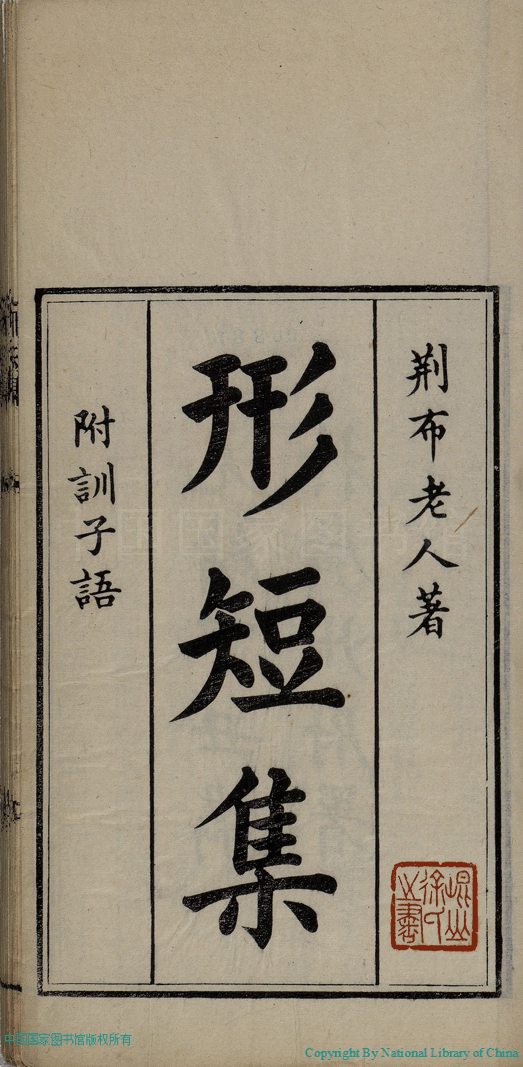 荆布老人著
形短集
附訓子語
崐山
徐氏
之書
中国国家图书馆版权所有
Copyright By National Library of China